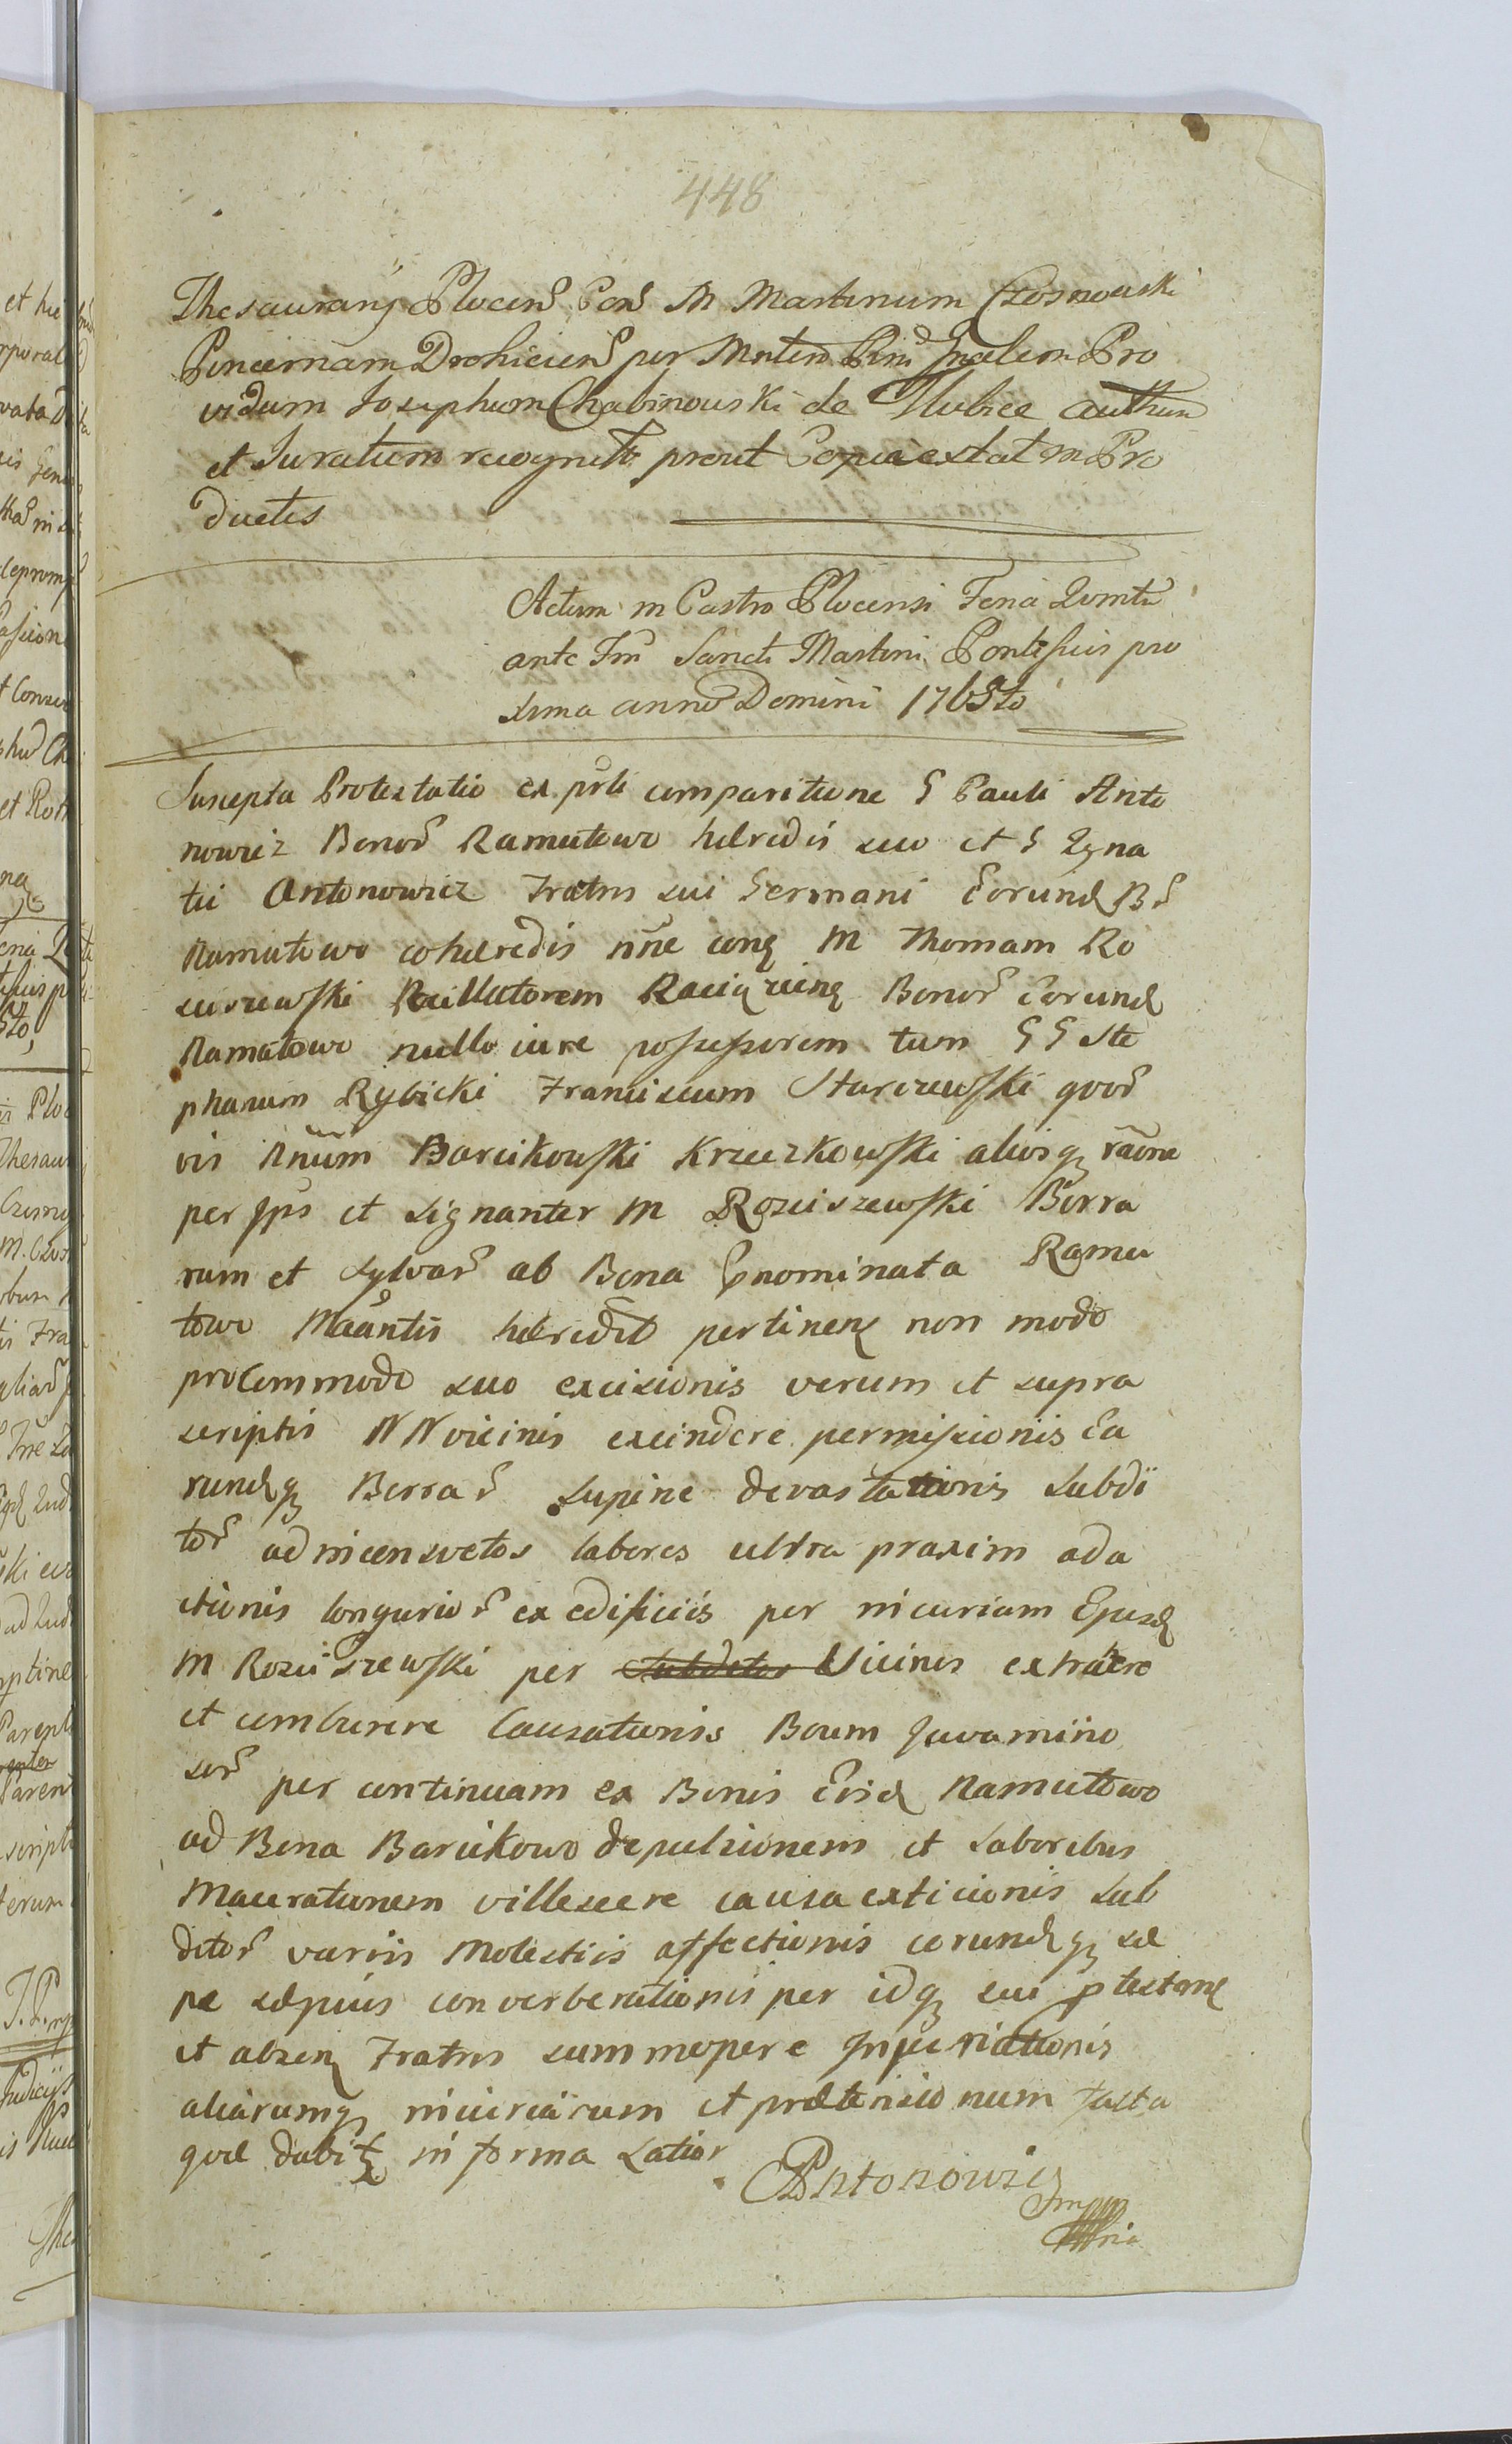 448
Thesaurarij Plocens Cons M Martinum Czosnowski
Pincernam Drohiciens per Mntem Gnalem Pro
vidum Josephum Chabinowski de Slubice Authen
et Juratum recognitt prout Copia extat in Pro
ductis
Actum in Castro Plocensi Feria Quinta
ante Fm Sancti Martini Pontificis pro
xima anno Domini 1765to
Suscepta Protestatio ex psti comparitione G Pauli Anto
nowicz Bonor Ramutowo heredis suo et G Igna
tii Antonowicz Fratris sui Germani Eorund Br
Ramutowo coheredis nne conq M Thomam Ro
sciszewski Vexillatorem Raciązinę Bonor Eorund
Ramutowo nullo iure possessorem tum GG Ste
phanum Rybicki Franciscum Sturczewski quor
vis Nnum Barcikowski Krzeczkowski aliosq raone
per Ipsos et signanter M Rozciszewski Borra
rum et Sylvar ab Bona Pnominata Ramu
towo Maantis heredit pertinen non modo
pro Commodo suo excisionis verum et supra
scriptis NN vicinis excindere permissionis Ea
rundq Borrar supine devastationis Subdi
tor ad inconsvetos labores ultra praxim ada
ctionis longurior ex edificiis per incuriam Ejusd
M Rozciszewski per Subditos Vicinis extraere
et comburere Causationis Boum Juvamino
sor per continuam ex Bonis Eisd Ramutowo
ad Bona Barcikowo depulsionem et laboribus
Macerationem villescere causa exticionis Sub
ditor variis Molestiis affectionis eorundq sæ
pe sæpius converberationis per idq sui ptestane
et absen Fratris summopere Injuriationis
aliarumq iniuriarum et prætensionum facta
quæ dabit in forma Latior
Antonowicz